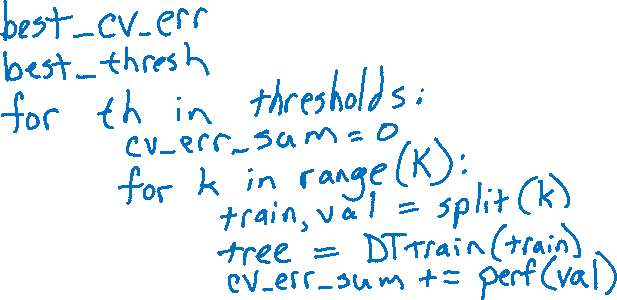 best_cv_err
best_thresh
for th in thresholds:
cv_err_sum = 0
for k in range(K):
train, val = split(k)
tree = DTtrain(train)
cv_err_sum += perf(val)